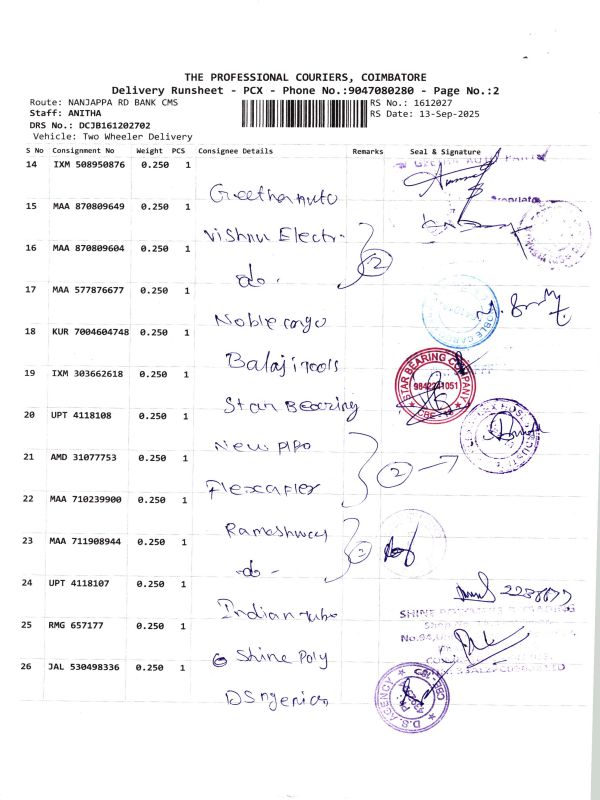 THE PROFESSIONAL COURIERS, COIMBATORE
Delivery Runsheet - PCX - Phone No.:9047080280 - Page No.:2
Route: NANJAPPA RD BANK CMS
RS No.: 1612027
Staff: ANITHA
RS Date: 13-Sep-2025
DRS No.: DCJB161202702
Vehicle: Two Wheeler Delivery
S No Consignment No Weight PCS Consignee Details Remarks Seal & Signature
14 IXM 508950876 0.250 1
Geetha auto
15 MAA 870809649 0.250 1
Vishnu Electr.
16 MAA 870809604 0.250 1
2
do.
17 MAA 577876677 0.250 1
Noble cargo
18 KUR 7004604748 0.250 1
Balaji tools
19 IXM 303662618 0.250 1
STAR BEARING COMPANY
9842241051
CBE
Star Bearing
20 UPT 4118108 0.250 1
New
21 AMD 31077753 0.250 1
2
22 MAA 710239900 0.250 1
23 MAA 711908944 0.250 1
2
do.
24 UPT 4118107 0.250 1
Indian tube
SHINE
25 RMG 657177 0.250 1
No.94,
Shine Poly
26 JAL 530498336 0.250 1
D.S. AGENCY